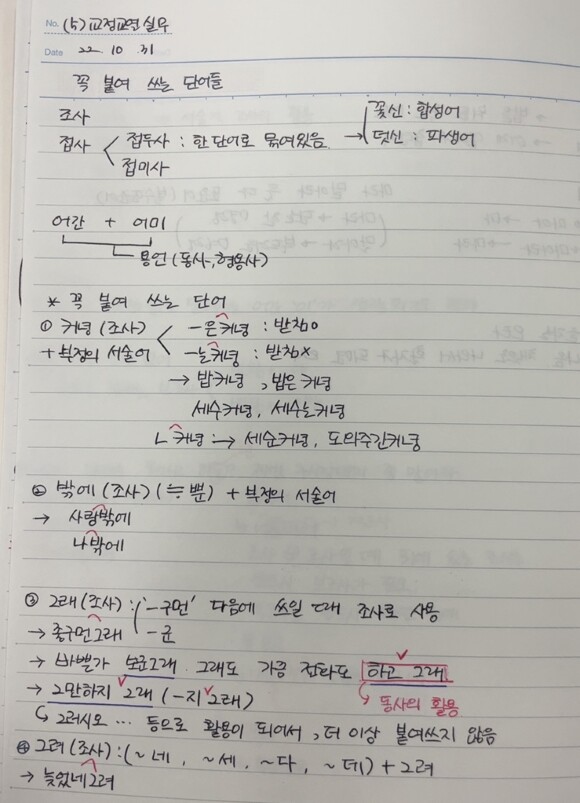 No. (5) 교정교열 실무
Date 22. 10. 31
꼭 붙여 쓰는 단어들
조사
접사 < 접두사 : 한 단어로 묶여있음. → 꽃신 : 합성어
접미사 덧신 : 파생어
어간 + 어미
용언 (동사, 형용사)
* 꼭 붙여 쓰는 단어
① 커녕 (조사) < -은커녕 : 받침o
+ 부정의 서술어 -는커녕 : 받침x
→ 밥커녕, 밥은 커녕
세수커녕, 세수는커녕
ㄴ커녕 : → 세순커녕, 도의주간커녕
② 밖에 (조사) (≒ 뿐) + 부정의 서술어
→ 사랑밖에
나밖에
③ 그래 (조사) : '-구먼' 다음에 쓰일 때 조사로 사용
→ 좋구먼그래 -군
→ 바쁠가 보군그래. 그래도 가끔 전화도 하고 그래.
→ 그만하지 그래 (-지 그래) 동사의 활용
↳ 그러시오 … 등으로 활용이 되어서, 더 이상 붙여쓰지 않음
④ 그려 (조사) : (~네, ~세, ~다, ~데) + 그려
→ 늦었네그려